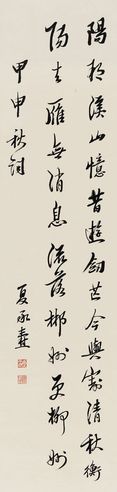 陽朔溪山憶昔遊劍芒今與清秋衡
陽去雁無消息流落郴州更柳州
甲申秋
夏承燾